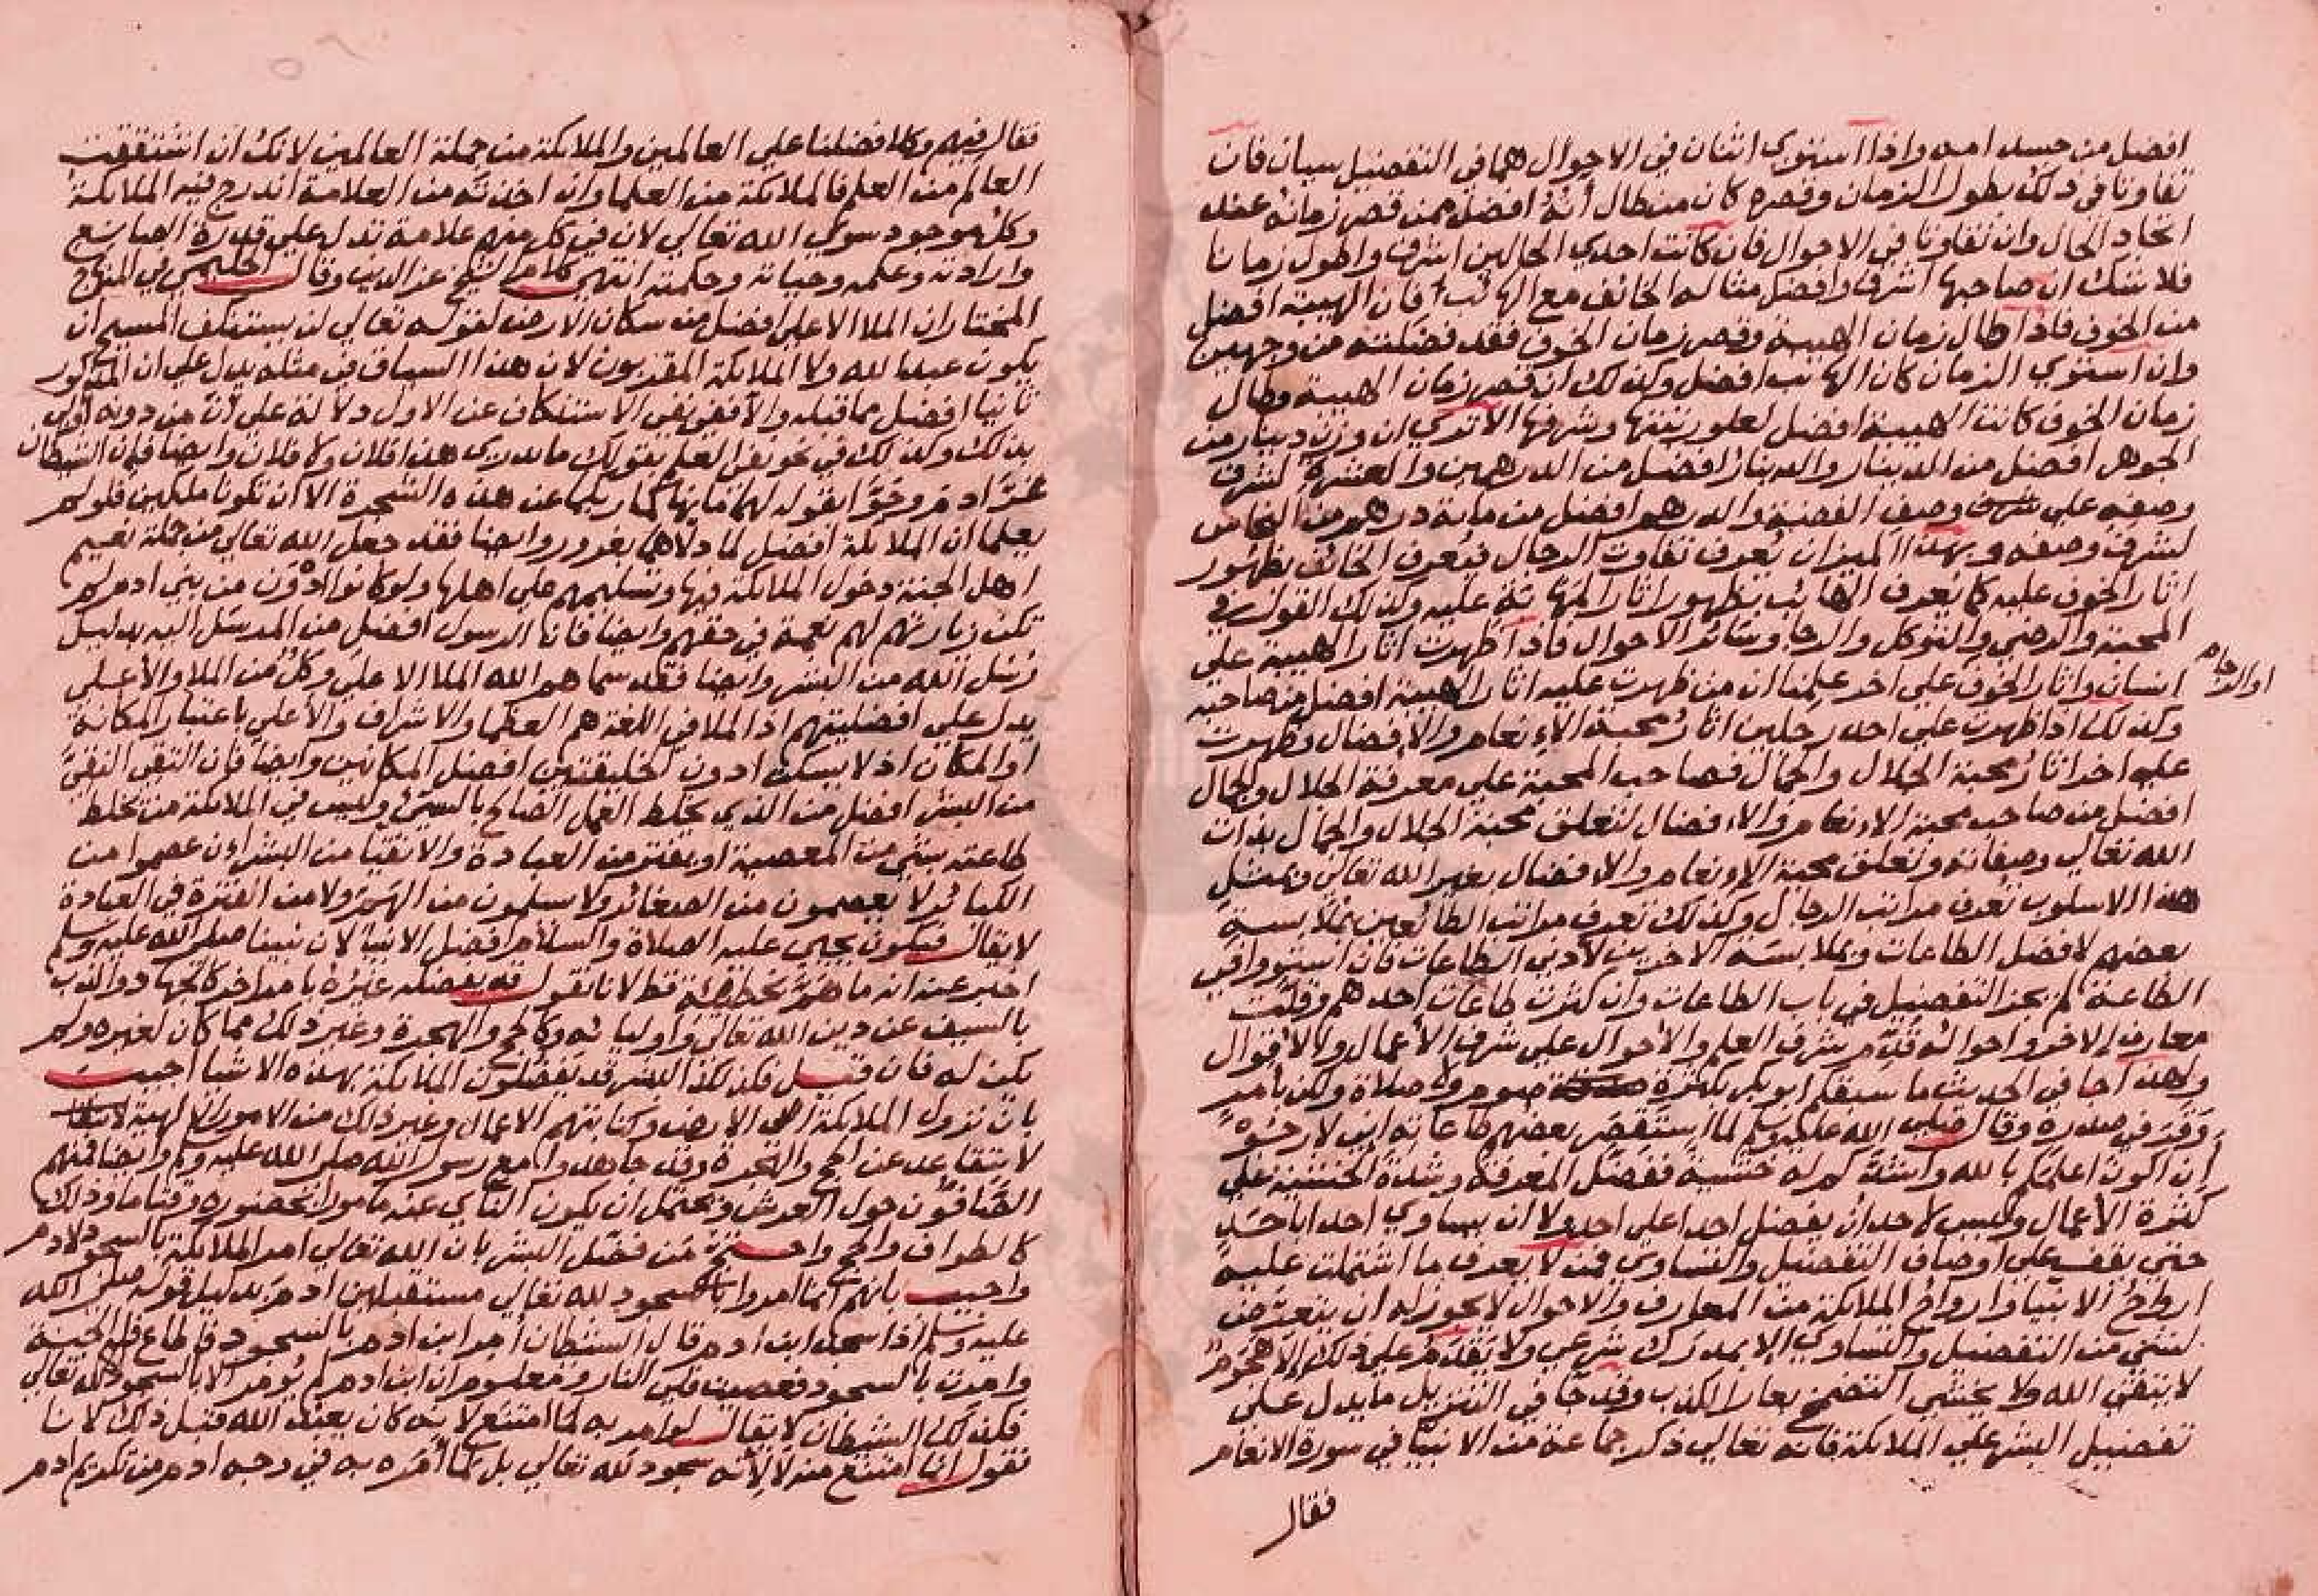 افضل من جسد امه واذا استوي اثنان في الاحوال فهما في التفضيل سيان فان
تفاوتا في ذلك بطول الزمان وقصره كان من طال أنه افضل ممن قصر زمانه عند
اتحاد الحال وان تفاوتا في الاحوال فان كانت احدي الحالين اشرف واطول زمانا
فلا شك ان صاحبها اشرف وافضل مثاله الخائف مع الهائب فان الهيبة افضل
من الخوف فاذا طال زمان الهيبة وقصر زمان الخوف فقد فضلته من وجهين
وان استوي الزمان كان الهائب افضل وكذلك ان قصر زمان الهيبة وطال
زمان الخوف كانت الهيبة افضل لعلو رتبتها وشرفها الا تري ان وزن دينار من
الجوهر افضل من الدينار والدينار افضل من الدرهمين والعشرة لشرف
وصفه علي شرف وصف الفضة والدرهم افضل من ماية درهم من النحاس
لشرف وصفه وبهذا الميزان يعرف تفاوت الرجال فيعرف الخائف بظهور
اثار الخوف عليه كما يعرف الهائب بظهور اثار المهابة عليه وكذلك القول في
المحبة والرضي والتوكل والرجا وسائر الاحوال فاذا ظهرت اثار الهيبة علي
انسان واثار الخوف علي اخر علمنا ان من ظهرت عليه اثار الهيبة افضل من صاحبه
وكذلك اذا ظهرت علي احد رجلين اثار محبة الانعام والافضال وظهرت
علي اخر اثار محبة الجلال والجمال فصاحب المحبة علي معرفة الجلال والجمال
افضل من صاحب محبة الانعام والافضال لتعلق محبة الجلال والجمال بذات
الله تعالي وصفاته وتعلق محبة الانعام والافضال بغير الله تعالي وبمثل
هذا الاسلوب تعرف مراتب الرجال وكذلك تعرف مراتب الطائعين بملابسة
بعضهم لافضل الطاعات وبملابسة الاخرين لادني الطاعات فان استووا في
الطاعة لم يجز التفضيل في باب الطاعات وان كثرت طاعات احدهم وقلت
معارف الاخر واحواله قدم شرف العلم والاحوال علي شرف الاعمال والاقوال
ولهذا جا في الحديث ما سبقكم ابو بكر بكثرة صوم ولا صلاة ولكن بامر
وقر في صدره وقال صلي الله عليه وسلم لما استقصر بعضهم طاعاته اني لارجو
ان اكون اعلمكم بالله واشدكم له خشية ففضل المعرفة وشدة الخشية علي
كثرة الاعمال وليس لاحد ان يفضل احدا علي احد ولا ان يساوي احدا باحد
حتي يقف علي اوصاف التفضيل والتساوي فمن لا يعرف ما اشتملت عليه
ارواح الانبيا وارواح الملائكة من المعارف والاحوال لا يجوز له ان يتعرض
لشي من التفضيل والتساوي الا بمدرك شرعي ولا يقدم علي ذلك الا هجوم
لا يتقي الله ولا يخشي التضمخ بعار الكذب وقد جا في التنزيل ما يدل علي
تفضيل البشر علي الملائكة فانه تعالي ذكر جماعة من الانبيا في سورة الانعام
فقال
فقال فيهم وكلا فضلنا علي العالمين والملائكة من جملة العالمين لانك ان اشتققت
العالم من العلم فالملائكة من العلما وان اخذته من العلامة اندرج فيه الملائكة
وكل موجود سوي الله تعالي لان في كل منهم علامة تدل علي قدرة الصانع
وارادته وعلمه وحياته وحكمته انتهي كلام الشيخ عز الدين وقال الحليمي في المنهاج
المختار ان الملا الاعلي افضل من سكان الارض لقوله تعالي لن يستنكف المسيح ان
يكون عبدا لله ولا الملائكة المقربون لان هذا السياق في مثله يدل علي ان المذكور
ثانيا افضل مما قبله والا ففي نفي الاستنكاف عن الاول دلالة علي ان من دونه اولي
بذلك وكذلك في نحو نفي العلم بقولك ما يدري هذا فلان ولا فلان وايضا فان الشيطان
غر ادم وحوا بقوله لهما ما نهاكما ربكما عن هذه الشجرة الا ان تكونا ملكين فلو لم
يعلما ان الملائكة افضل لما دلاهما بغرور وايضا فقد جعل الله تعالي من جملة نعيم
اهل الجنة دخول الملائكة فيها وتسليمهم علي اهلها ولو كانوا ادون من بني ادم لم
تكن زيارتهم لهم نعمة في حقهم وايضا فان الرسول افضل من المرسل اليه بدليل
رسل الله من البشر وايضا فقد سماهم الله الملا الاعلي وكل من الملا والاعلي
يدل علي افضليتهم اذ الملا في اللغة هم العظما والاشراف والاعلي باعتبار المكانة
او المكان اذ لا يسكن ادون الخليقتين افضل المكانين وايضا فان التقي النقي
من البشر افضل من الذي يخلط العمل الصالح بالسيئ وليس في الملائكة من يخلط
طاعته بشي من المعصية او يفتر من العبادة والاتقيا من البشر ان عصموا من
الكبائر لا يعصمون من الصغائر ولا يسلمون من الهمز ولا من الفترة في العبادة
لا يقال فيكون يحيي عليه الصلاة والسلام افضل الانبيا لان نبينا صلي الله عليه وسلم
اخبر عنه انه ما هم بخطيئة قط لانا نقول قد يفضله غيره بامر اخر كالجهاد والذب
بالسيف عن دين الله تعالي واوليائه وكالحج والهجرة وغير ذلك مما كان لغيره ولم
يكن له فان قيل فكذلك البشر قد يفضلون الملائكة بهذه الاشيا اجيب
بان نزول الملائكة الي الارض وكتابتهم الاعمال وغير ذلك من الامور الالهية
لا يتقاعد عن الحج والهجرة وقد جاهدوا مع رسول الله صلي الله عليه وسلم وايضا فمنهم
الصافون حول العرش ويحتمل ان يكون النائي عنه مامورا بحضوره وقتا ما وذلك
كالطواف والحج واحتج من فضل البشر بان الله تعالي امر الملائكة بالسجود لادم
واجيب بانهم انما امروا بالسجود لله تعالي مستقبلين ادم بدليل قوله صلي الله
عليه وسلم اذا سجد ابن ادم قال الشيطان امر ابن ادم بالسجود فاطاع فله الجنة
وامرت بالسجود فعصيت فلي النار ومعلوم ان ابن ادم لم يؤمر الا بالسجود لله تعالي
فكذلك الشيطان لا يقال لو امر به لما امتنع لانه كان يعبد الله قبل ذلك لانا
نقول انما امتنع منه لا لانه سجود لله تعالي بل لما امره به في وجه ادم من تكريم ادم